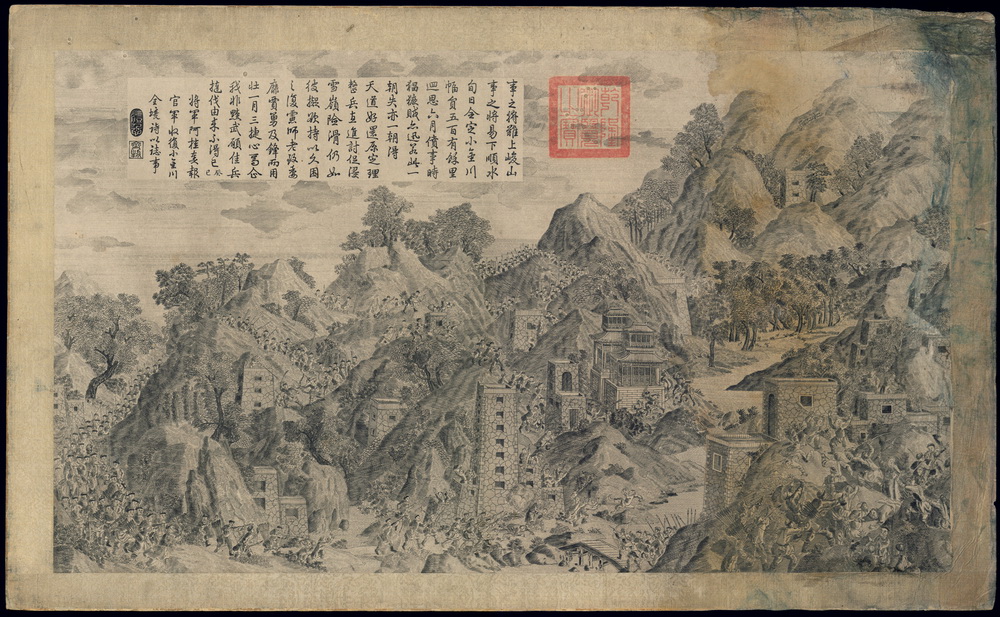 事之將難上峻山
事之將易下順水
旬日全定小金川
幅員五百有餘里
迴思六月僨事時
猖獗賊亦迅若此一
朝失亦一朝得
天道好還原定理
整兵直進討促浸
雪嶺險滑仍如
彼擬欲持以久困
之復虞師老致委
靡賈勇及鋒而用
壯一月三捷心冀合
我非黷武顧佳兵
撻伐由來不得已 癸巳
將軍阿桂奏報
官軍收復小金川
全境詩以誌事